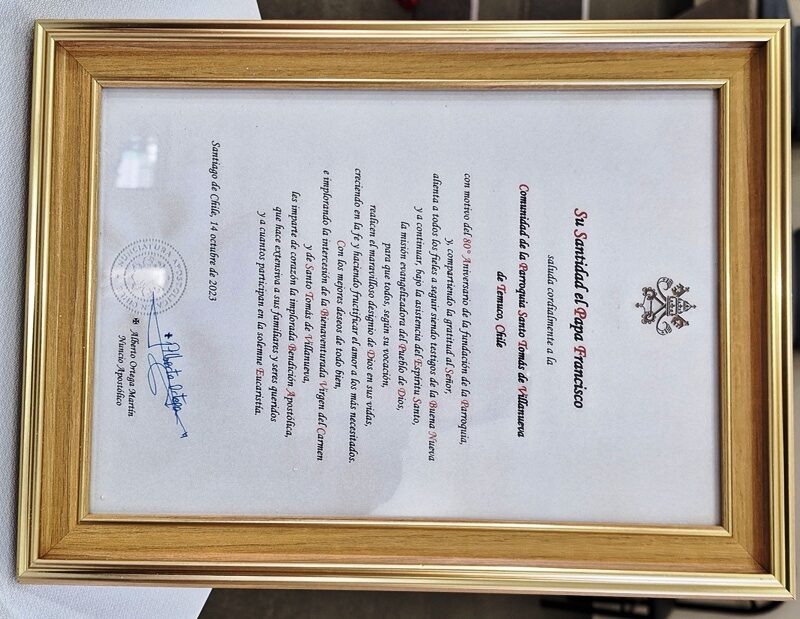 Su Santidad el Papa Francisco
saluda cordialmente a la
Comunidad de la Parroquia Santo Tomás de Villanueva
de Temuco, Chile
con motivo del 80° Aniversario de la fundación de la Parroquia,
y, compartiendo la gratitud al Señor,
alienta a todos los fieles a seguir siendo testigos de la Buena Nueva
y a continuar, bajo la asistencia del Espíritu Santo,
la misión evangelizadora del Pueblo de Dios,
para que todos, según su vocación,
realicen el maravilloso designio de Dios en sus vidas,
creciendo en la fe y haciendo fructificar el amor a los más necesitados.
Con los mejores deseos de todo bien,
e implorando la intercesión de la Bienaventurada Virgen del Carmen
y de Santo Tomás de Villanueva,
les imparte de corazón la implorada Bendición Apostólica,
que hace extensiva a sus familiares y seres queridos
y a cuantos participan en la solemne Eucaristía.
Santiago de Chile, 14 octubre de 2023
✠ Alberto Ortega
✠ Alberto Ortega Martín
Nuncio Apostólico